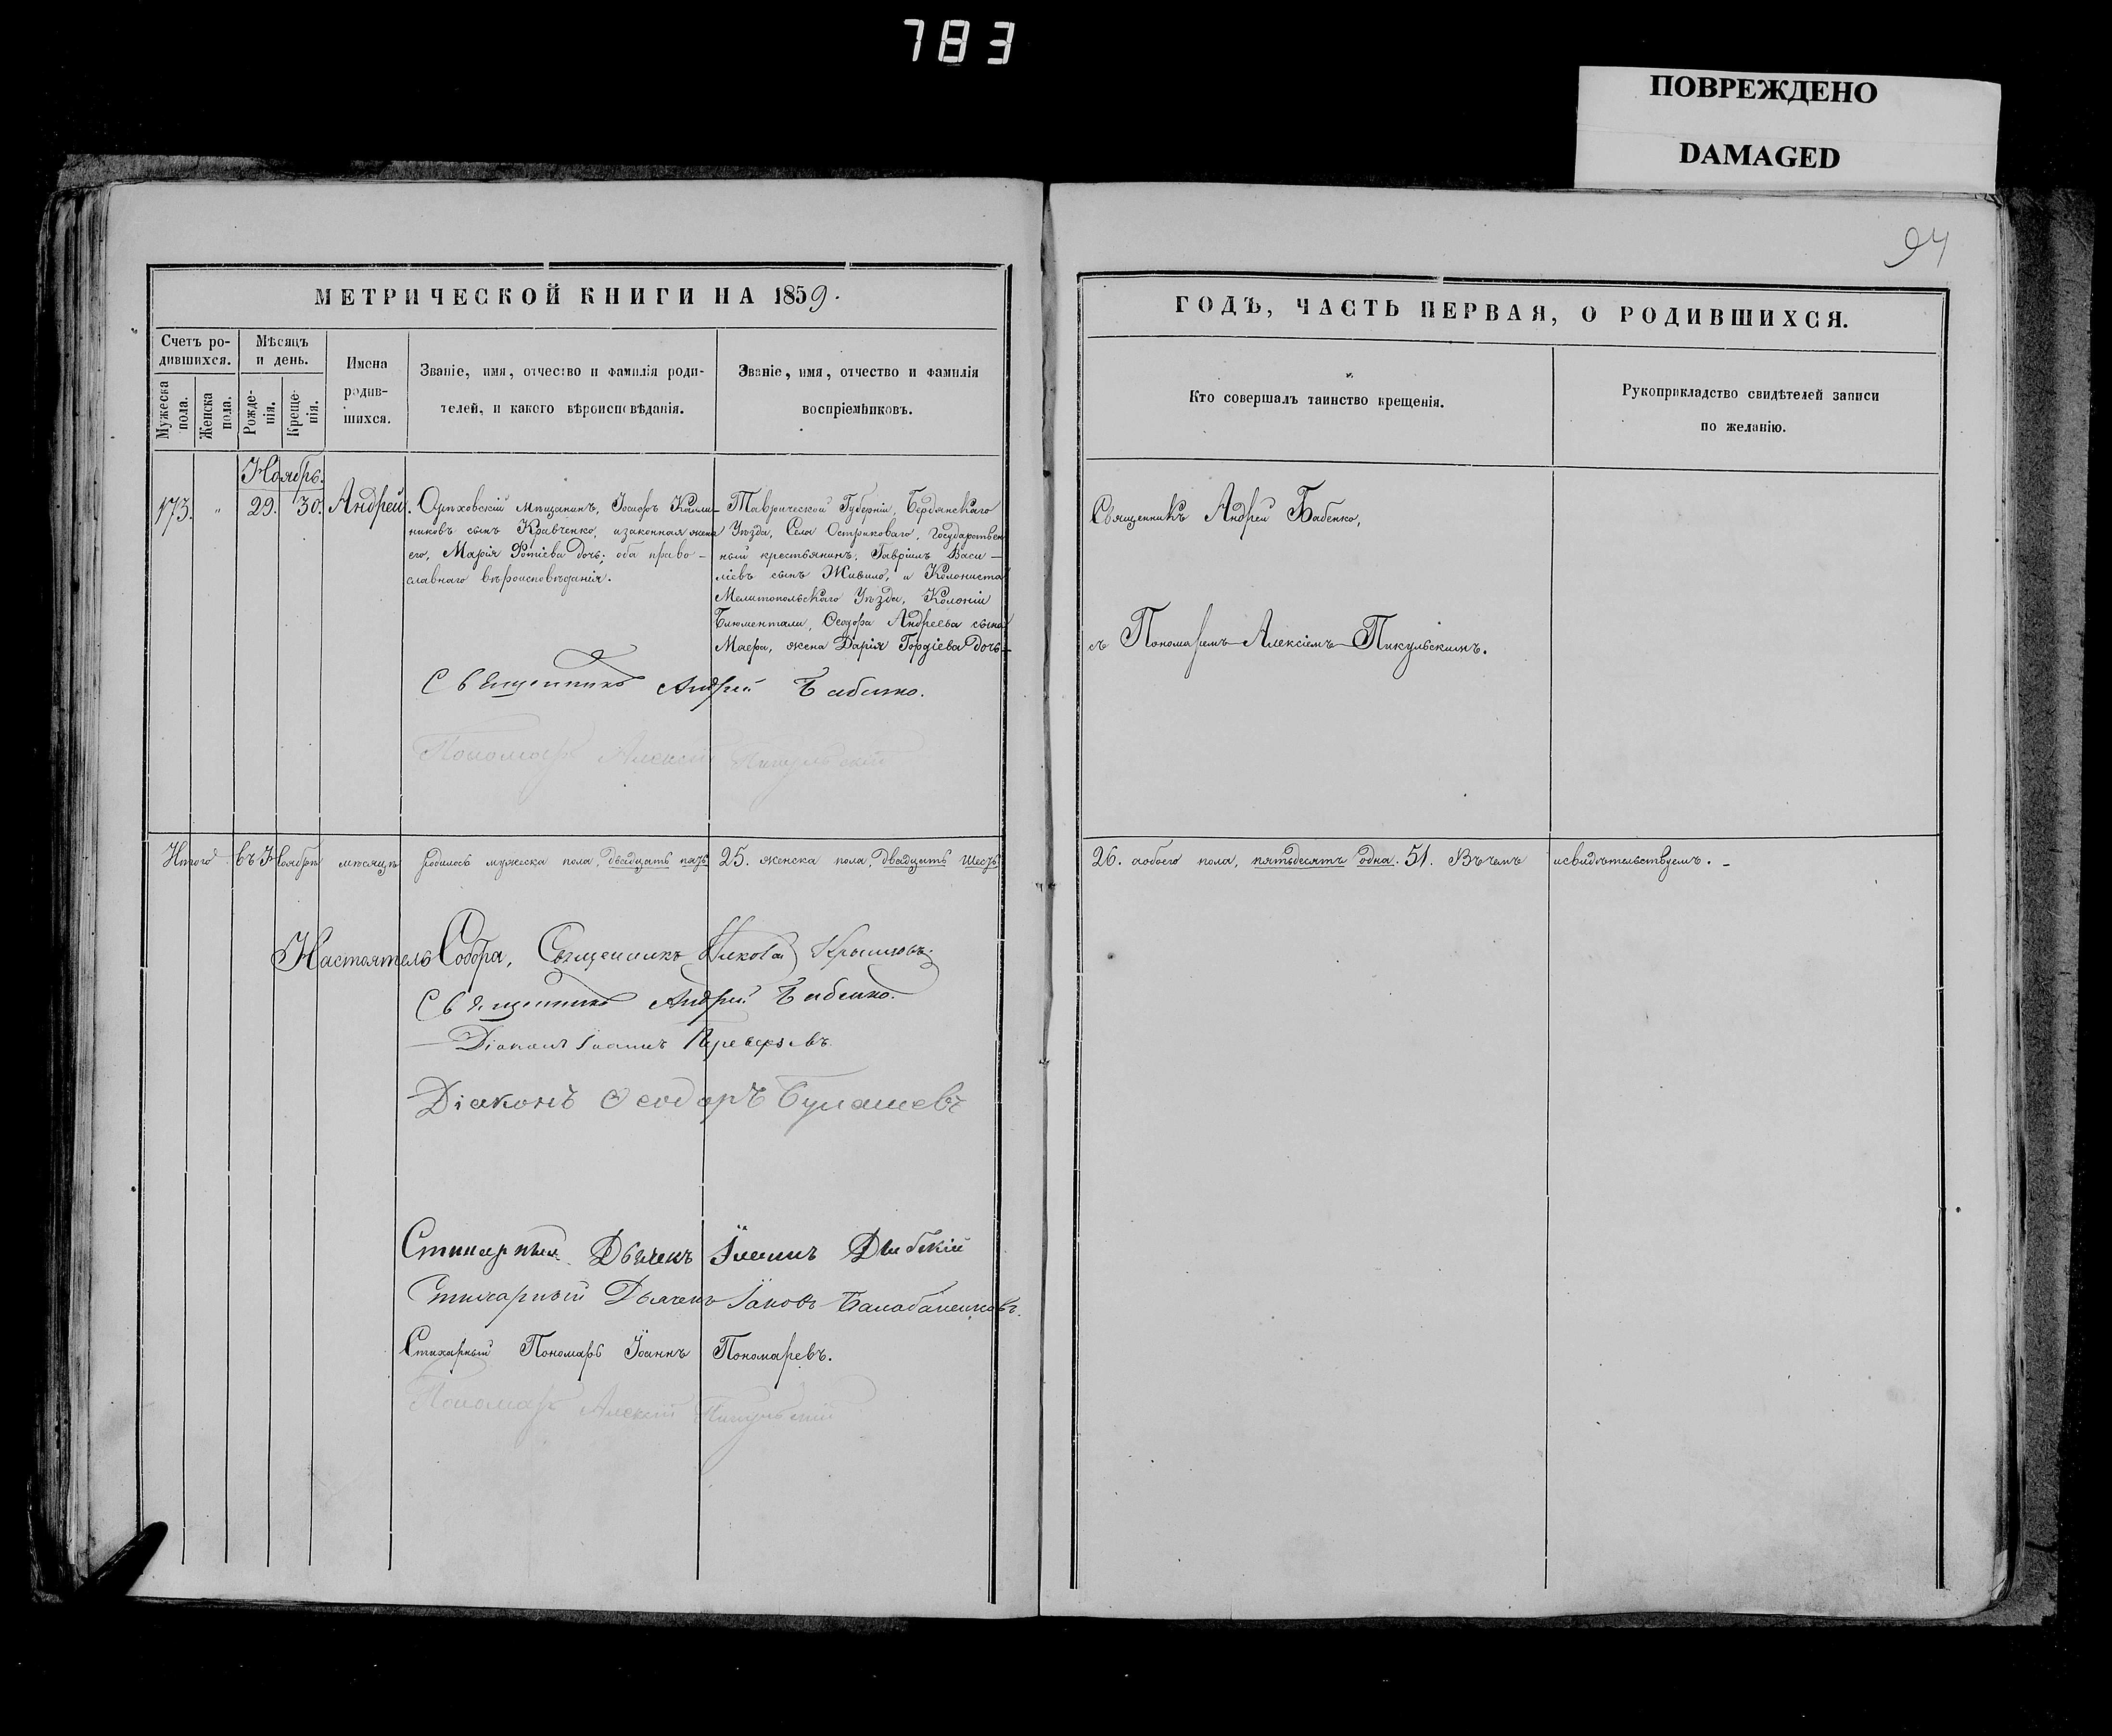 783
ПОВРЕЖДЕНО
DAMAGED
94
МЕТРИЧЕСКОЙ КНИГИ НА 1859.
Счетъ ро-
дившихся.
Мужеска пола.
Женска пола.
Мѣсяцъ
и день.
Рожде-
нія.
Креще-
нія.
Имена
родив-
шихся.
Званіе, имя, отчество и фамилія роди-
телей, и какого вѣроисповѣданія.
Званіе, имя, отчество и фамилія
воспріемниковъ.
ГОДЪ, ЧАСТЬ ПЕРВАЯ, О РОДИВШИХСЯ.
Кто совершалъ таинство крещенія.
Рукоприкладство свидѣтелей записи
по желанію.
Ноябрь.
173. " 29. 30. Андрей.
Орѣховскій мѣщанинъ, Іосифъ Калли-
никовъ сынъ Кравченко, изаконная жена
его, Марія Фотіева дочь; оба право-
славнаго вѣроисповѣданія.
Таврической Губерніи, Бердянскаго
Уѣзда, Села Остриковаго, Государствен
ный крестьянинъ, Гавріилъ Васи-
ліевъ сынъ Живило, и Колониста
Мелитопольскаго Уѣзда, Колоніи
Блюментали, Ѳеодора Андреева сына
Маера, жена Дарія Гордіева дочь
Священникъ Андрей Бабенко,
съ Пономаремъ Алексіемъ Пикульскимъ.
Священникъ Андрей Бабенко.
Пономарь Алексій Пикульскій
Итого въ Ноябрѣ мѣсяцѣ родилось мужеска пола, двадцать пять 25. женска пола, двадцать шесть 26. аобоего пола, пятьдесятъ одна. 51. Въ чемъ исвидѣтельствуемъ. -
Настоятель Собора, Священникъ Николай
Священникъ Андрей Бабенко.
Діаконъ Іоаннъ
Діаконъ Ѳеодоръ Булашевъ
Стихарный Дьячекъ Іоаннъ
Стихарный Дьячекъ Іаковъ Балабаненковъ.
Стихарный Пономарь Іоаннъ Пономаревъ.
Пономарь Алексій Пикульскій